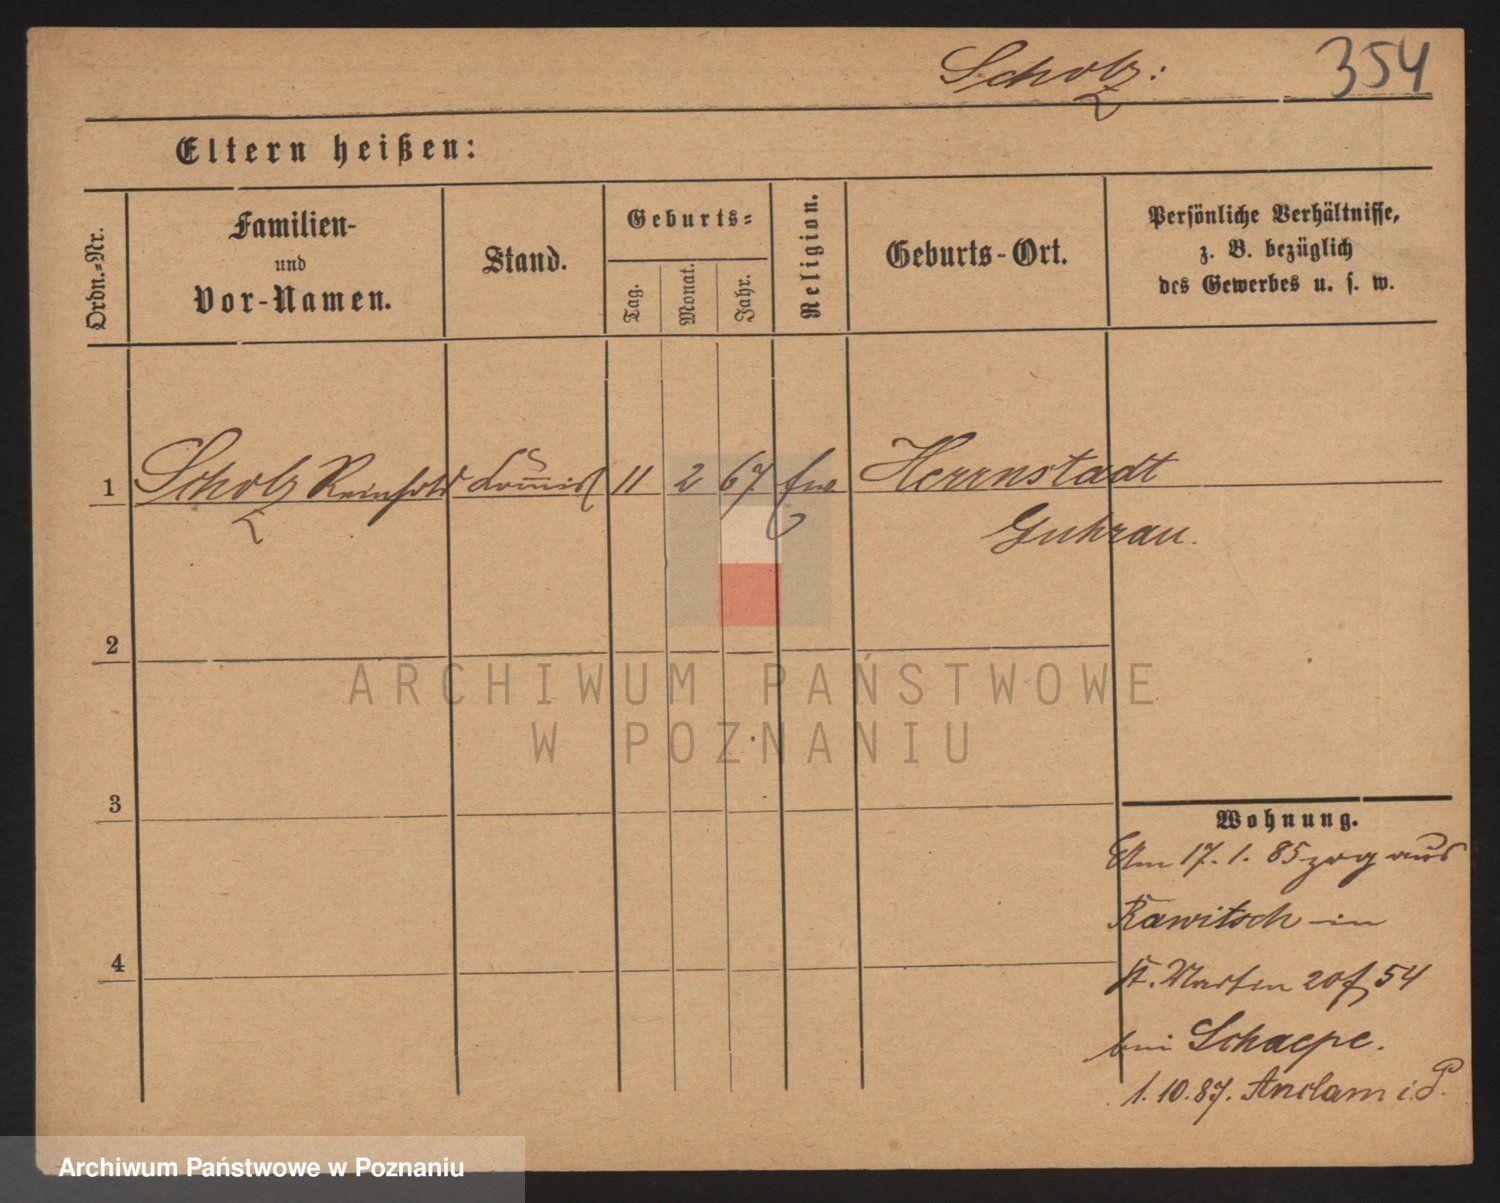 Scholz: 354
Eltern heißen:
Ordn.-Nr.
Familien-
und
Vor-Namen.
Stand.
Geburts-
Tag.
Monat.
Jahr.
Religion.
Geburts-Ort.
Persönliche Verhältnisse,
z. B. bezüglich
des Gewerbes u. s. w.
1 Scholz Reinhold Commis 11 2 67 Herrnstadt
Guhrau.
2
3
4
Wohnung.
Am 17. 1. 85 zog aus
Rawitsch in
St. Martin 20 54
bei Schaepe.
1. 10. 87. Anclam i. P.
ARCHIWUM PAŃSTWOWE
W POZNANIU
Archiwum Państwowe w Poznaniu